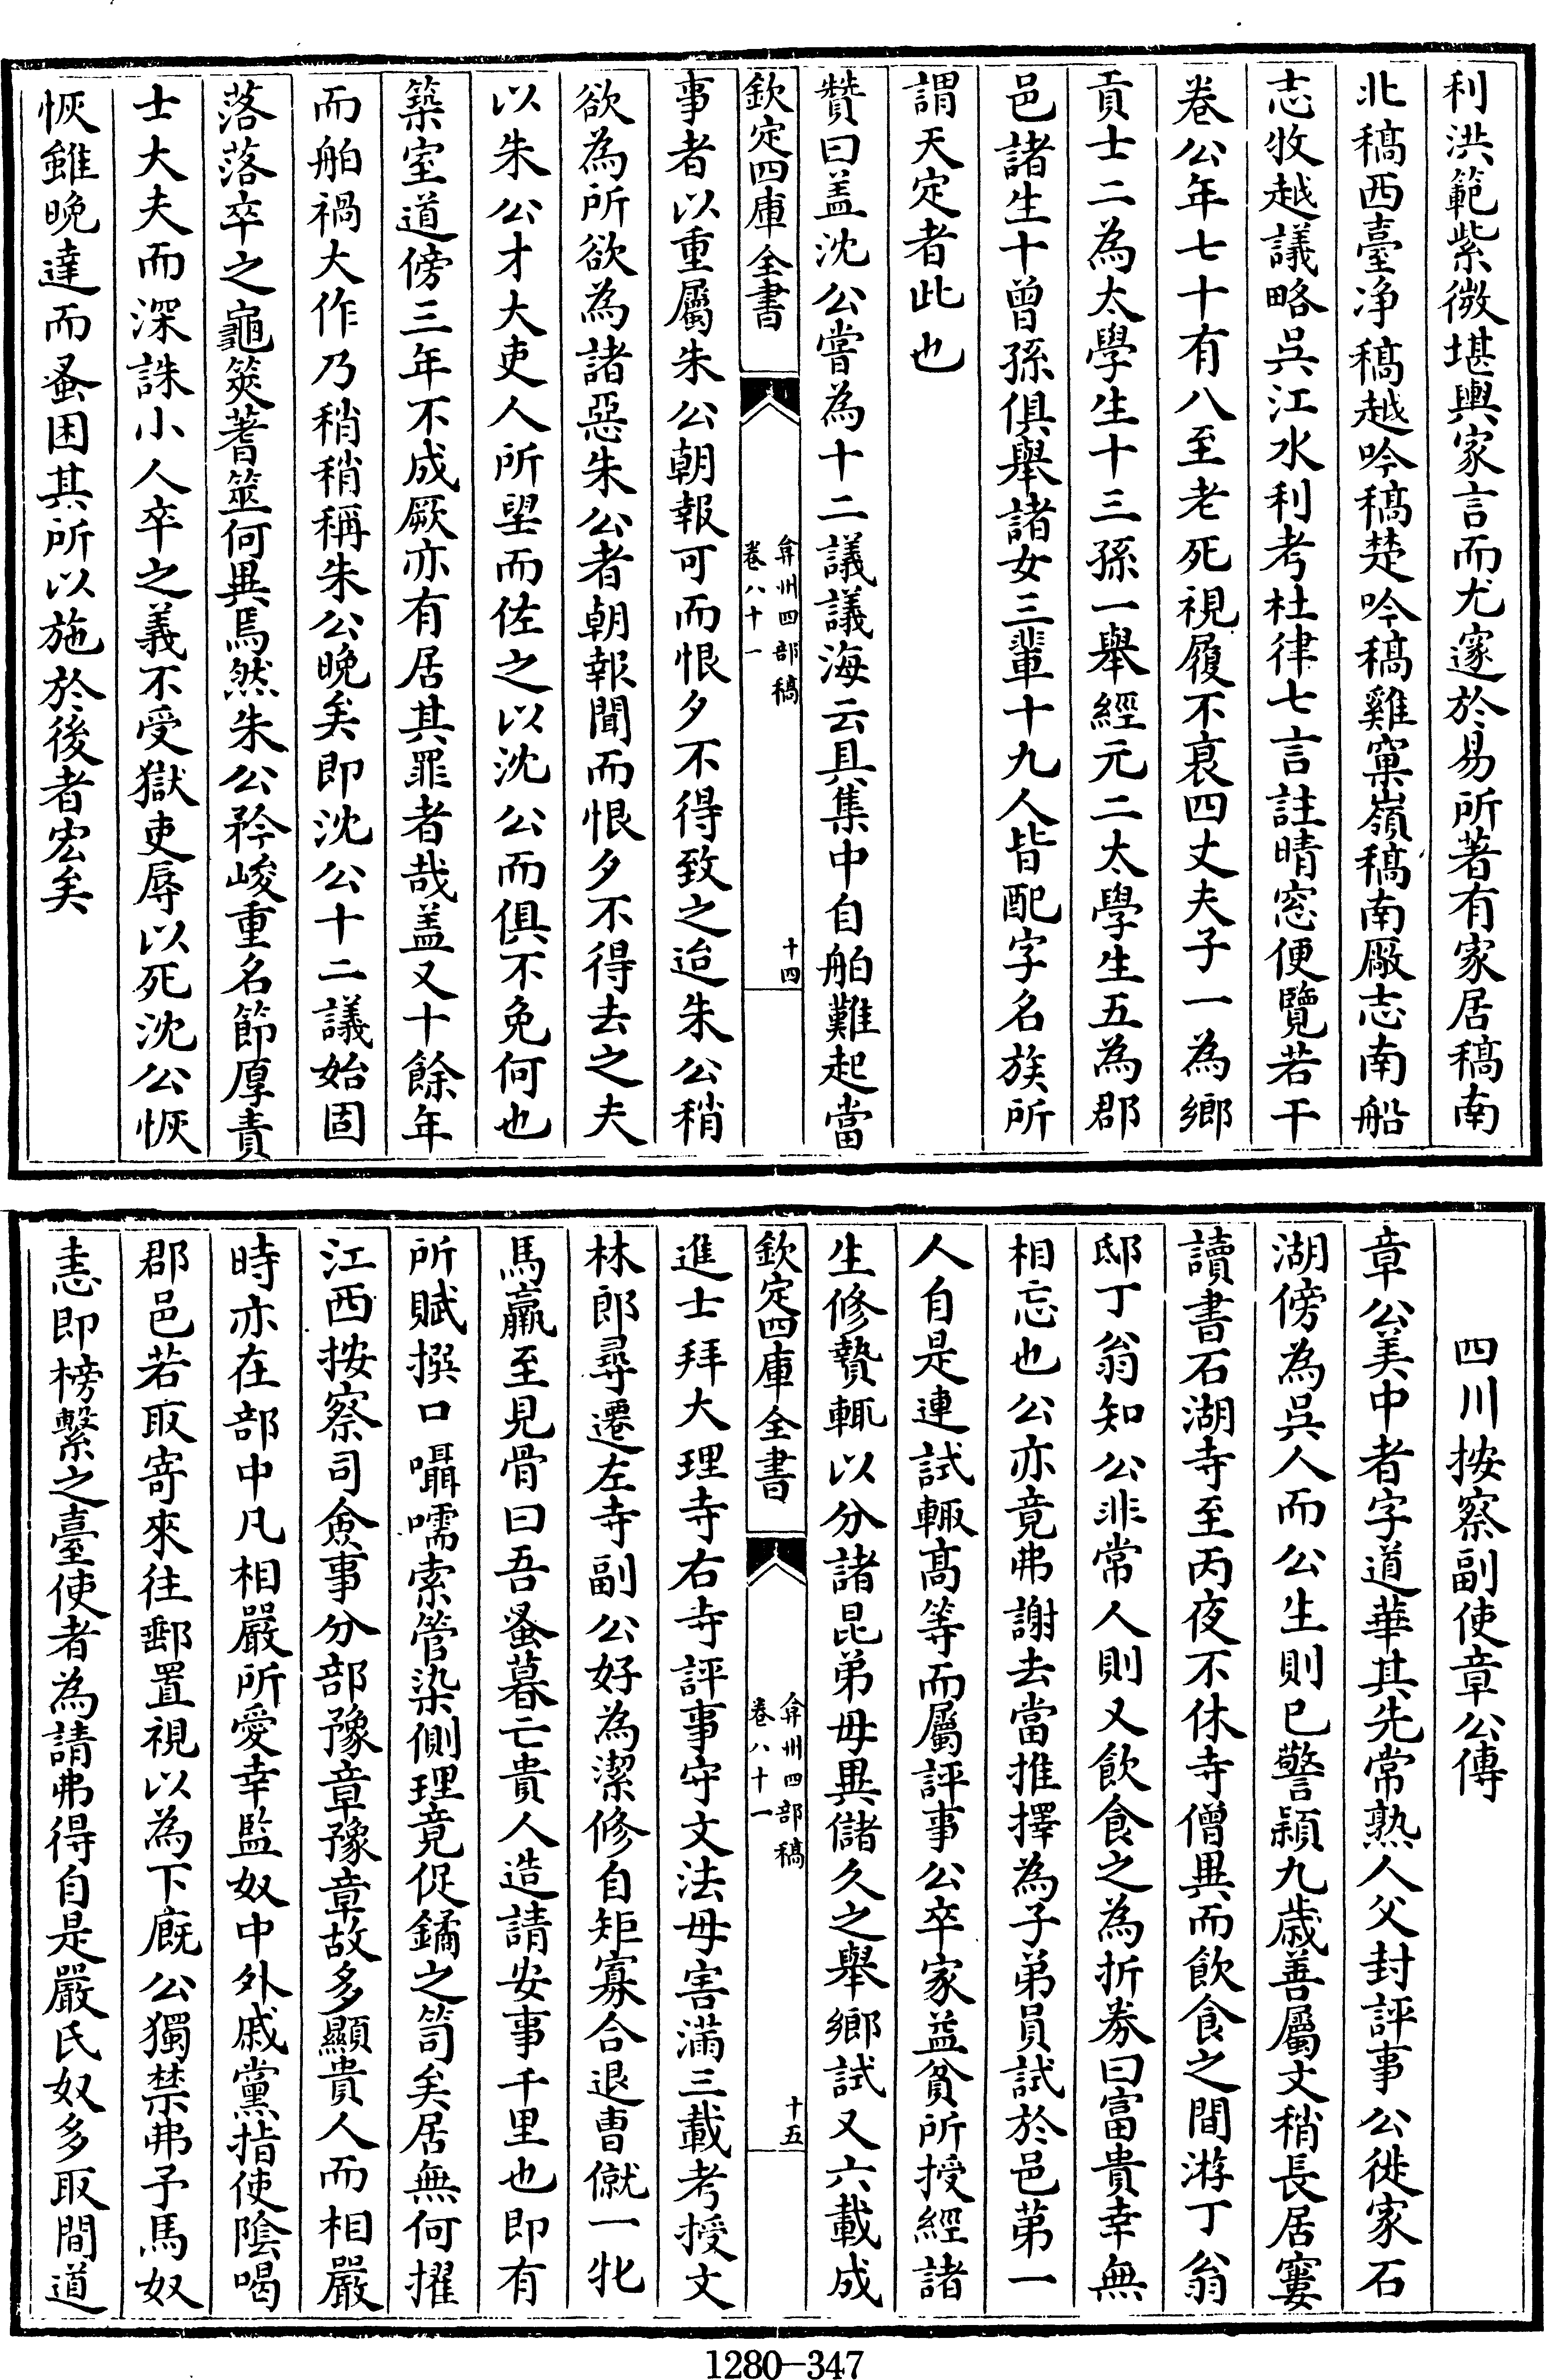 利洪範紫微堪輿家言而尤邃於易所著有家居稿南
北稿西臺净稿越吟稿楚吟稿雞窠嶺稿南廠志南船
志牧越議略呉江水利考杜律七言註晴窓便覽若干
卷公年七十有八至老死視履不衰四丈夫子一為鄉
貢士二為太學生十三孫一舉經元二太學生五為郡
邑諸生十曾孫俱舉諸女三輩十九人皆配字名族所
謂天定者此也
贊曰盖沈公嘗為十二議議海云具集中自舶難起當
欽定四庫全書
弇州四部稿
卷八十一
十四
事者以重屬朱公朝報可而恨夕不得致之迨朱公稍
欲為所欲為諸惡朱公者朝報聞而恨夕不得去之夫
以朱公才大吏人所望而佐之以沈公而俱不免何也
築室道傍三年不成厥亦有居其罪者哉盖又十餘年
而舶禍大作乃稍稍稱朱公晚矣即沈公十二議始固
落落卒之龜筴蓍筮何異焉然朱公矜峻重名節厚責
士大夫而深誅小人卒之義不受獄吏辱以死沈公恢
恢雖晚達而蚤困其所以施於後者宏矣
四川按察副使章公傳
章公美中者字道華其先常熟人父封評事公徙家石
湖傍為呉人而公生則已警頴九歳善屬文稍長居窶
讀書石湖寺至丙夜不休寺僧異而飲食之間游丁翁
邸丁翁知公非常人則又飲食之為折劵曰富貴幸無
相忘也公亦竟弗謝去當推擇為子弟員試於邑第一
人自是連試輙髙等而屬評事公卒家益貧所授經諸
生修贄輙以分諸昆弟毋異儲久之舉鄉試又六載成
欽定四庫全書
弇州四部稿
卷八十一
十五
進士拜大理寺右寺評事守文法毋害滿三載考授文
林郎尋遷左寺副公好為潔修自矩寡合退曹僦一牝
馬羸至見骨曰吾蚤暮亡貴人造請安事千里也即有
所賦撰口囁嚅索管染側理竟促鐍之笥矣居無何擢
江西按察司僉事分部豫章豫章故多顯貴人而相嚴
時亦在部中凡相嚴所愛幸監奴中外戚黨指使陰喝
郡邑若取寄來往郵置視以為下廐公獨禁弗予馬奴
恚即榜繫之臺使者為請弗得自是嚴氏奴多取間道
1280-347